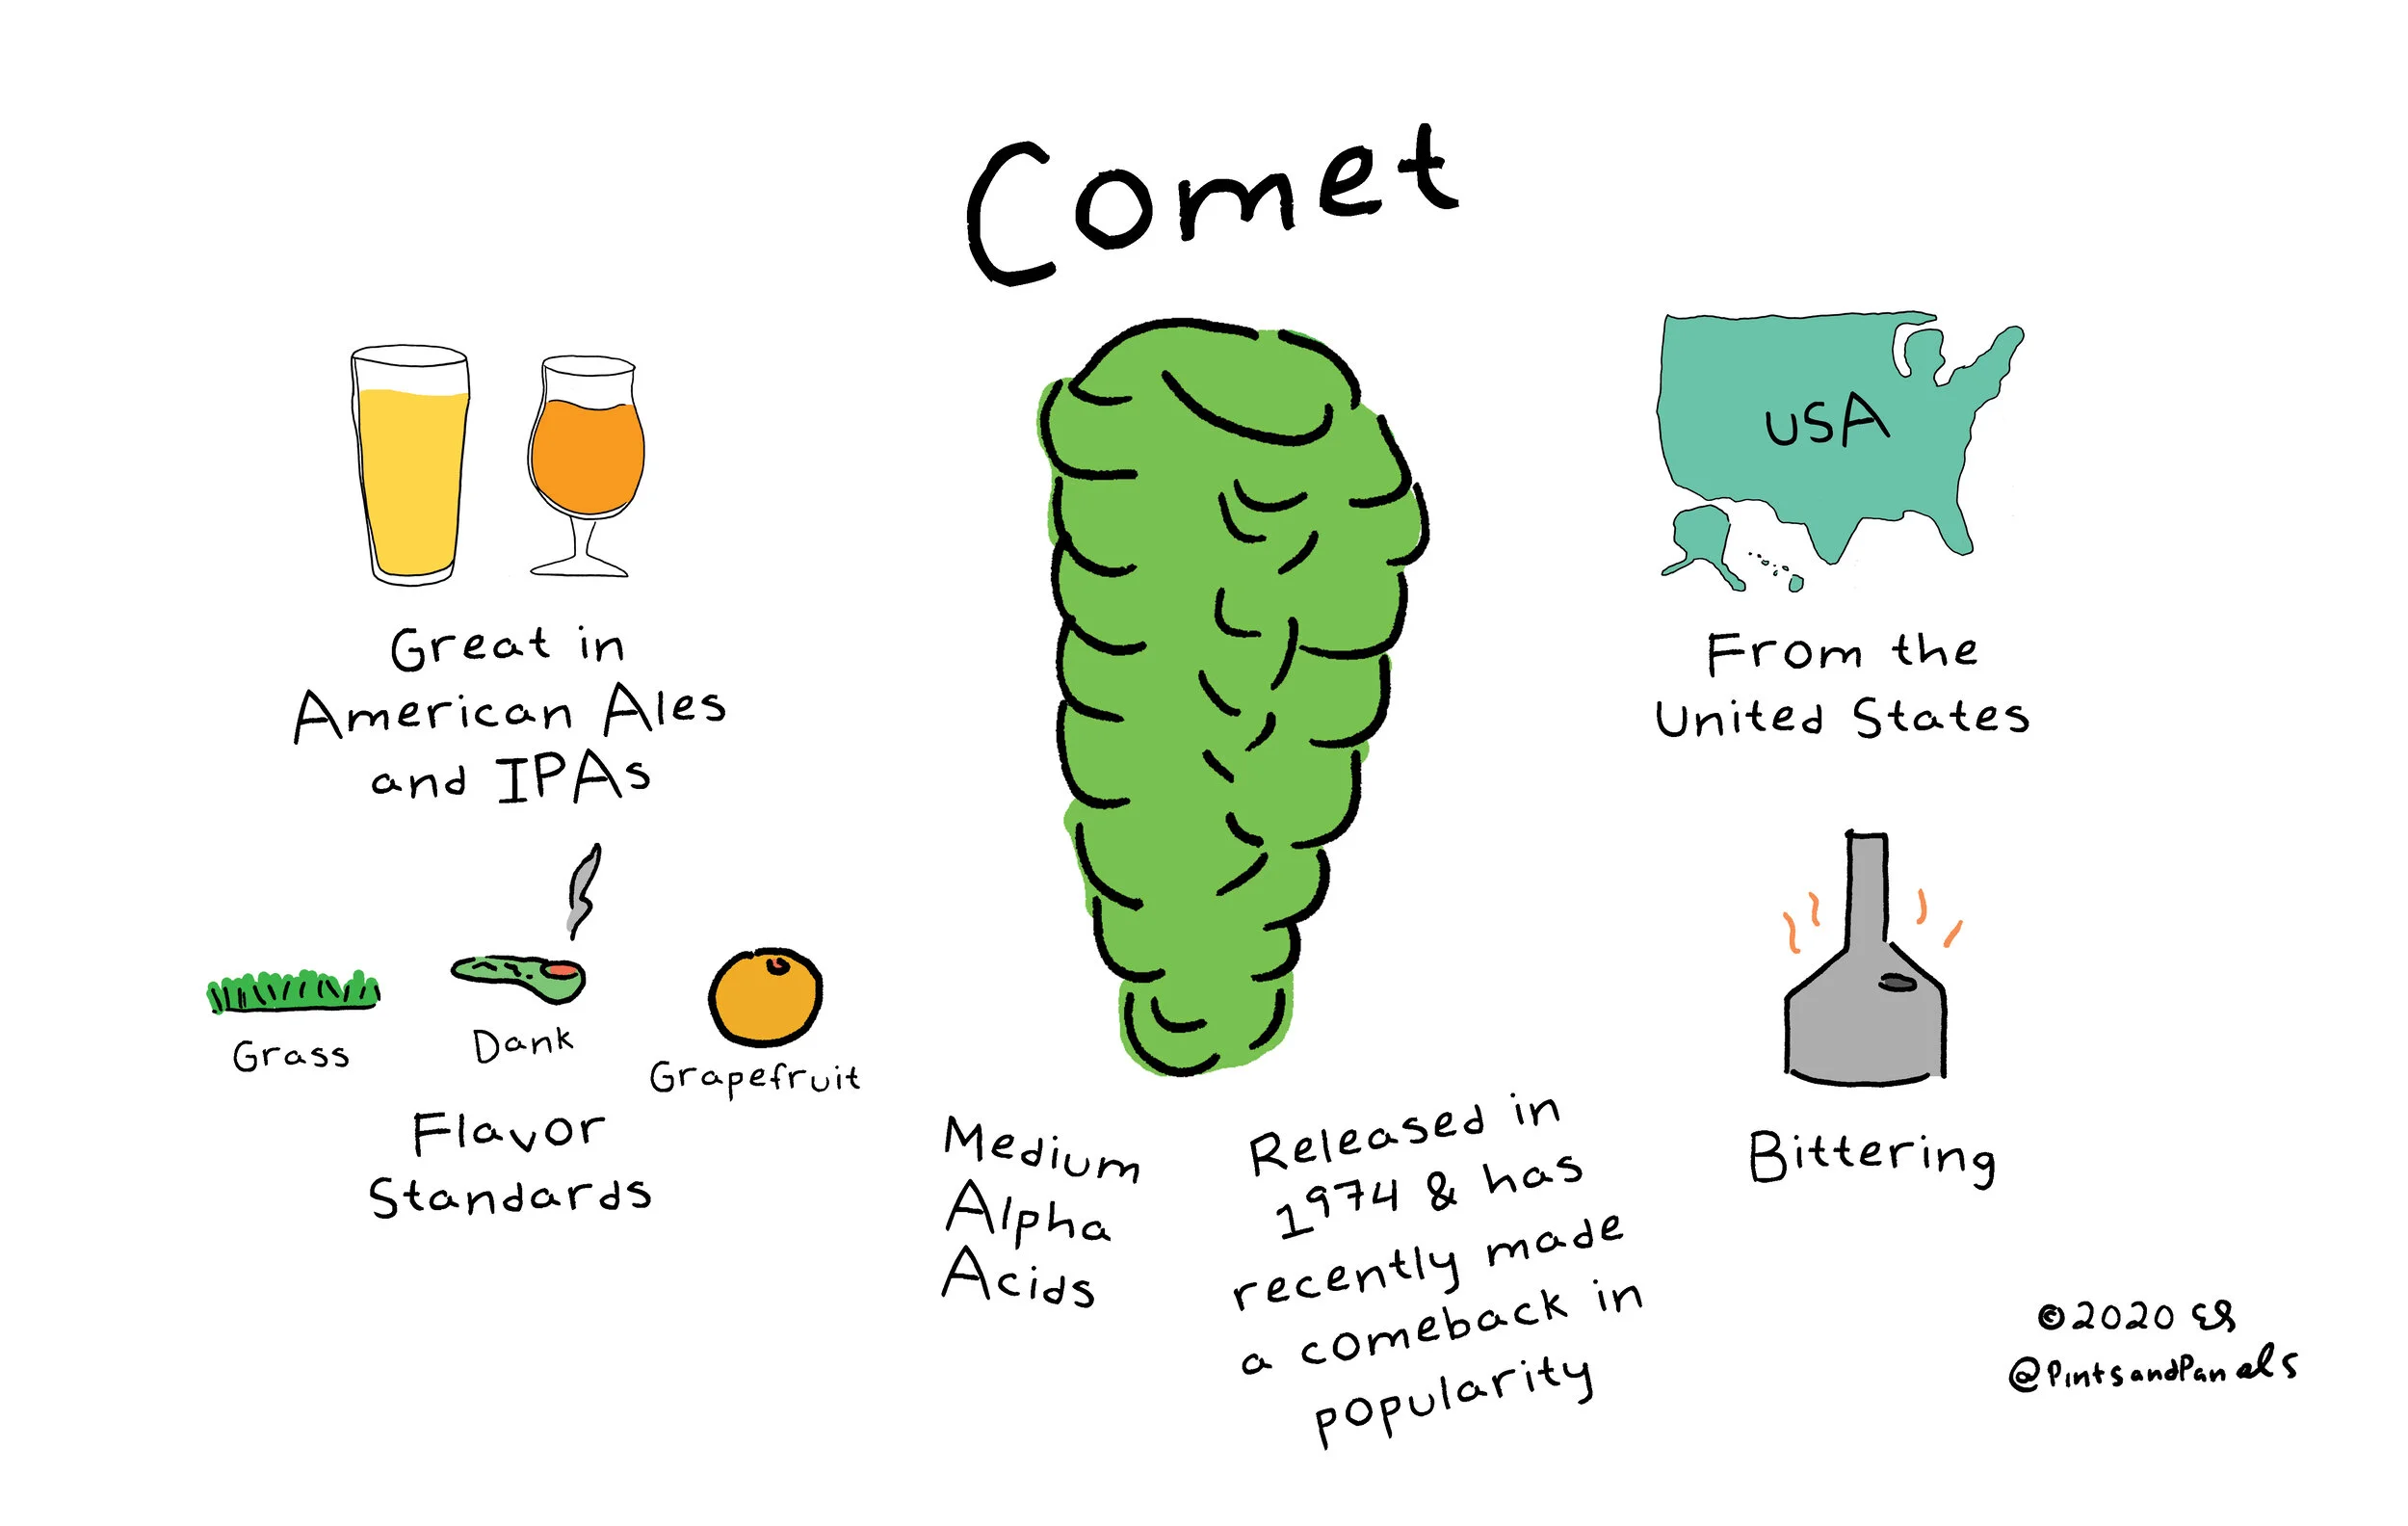 Comet
Great in
American Ales
and IPAs
USA
From the
United States
Grass
Dank
Grapefruit
Flavor
Standards
Medium
Alpha
Acids
Released in
1974 & has
recently made
a comeback in
popularity
Bittering
©2020 ES
@PintsandPanels